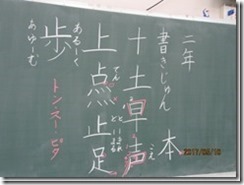 二年
書きじゅん 本
十土声
え
上点止足
てん
歩
あるーく
あゆーむ
トン・スー・ピタ